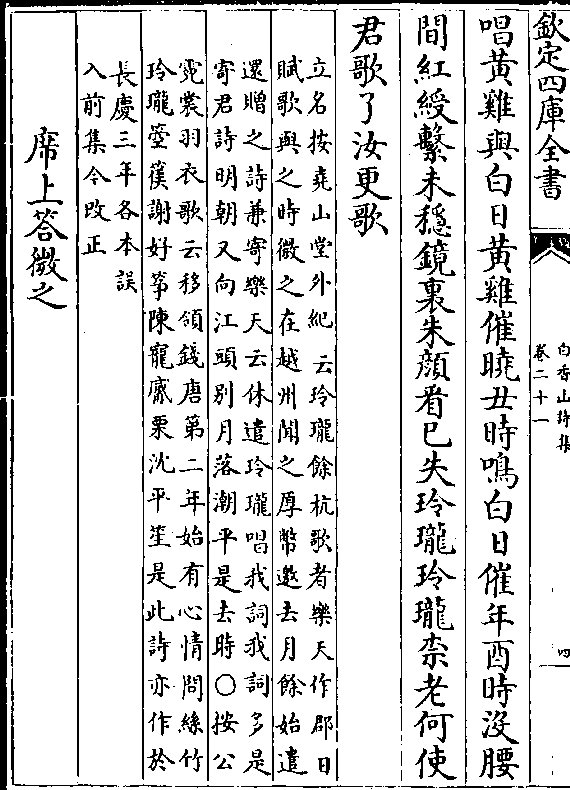 欽定四庫全書
白香山詩集
卷二十一
四
唱黃雞與白日黃雞催曉丑時鳴白日催年酉時沒腰
間紅綬繫未穩鏡裏朱顔看已失玲瓏玲瓏柰老何使
君歌了汝更歌
立名按堯山堂外紀云玲瓏餘杭歌者樂天作郡日
賦歌與之時微之在越州聞之厚幣邀去月餘始遣
還贈之詩兼寄樂天云休遣玲瓏唱我詞我詞多是
寄君詩明朝又向江頭别月落潮平是去時○按公
霓裳羽衣歌云移領錢唐第二年始有心情問絲竹
玲瓏箜篌謝好箏陳寵觱栗沈平笙是此詩亦作於
長慶三年各本誤
入前集今改正
席上答微之